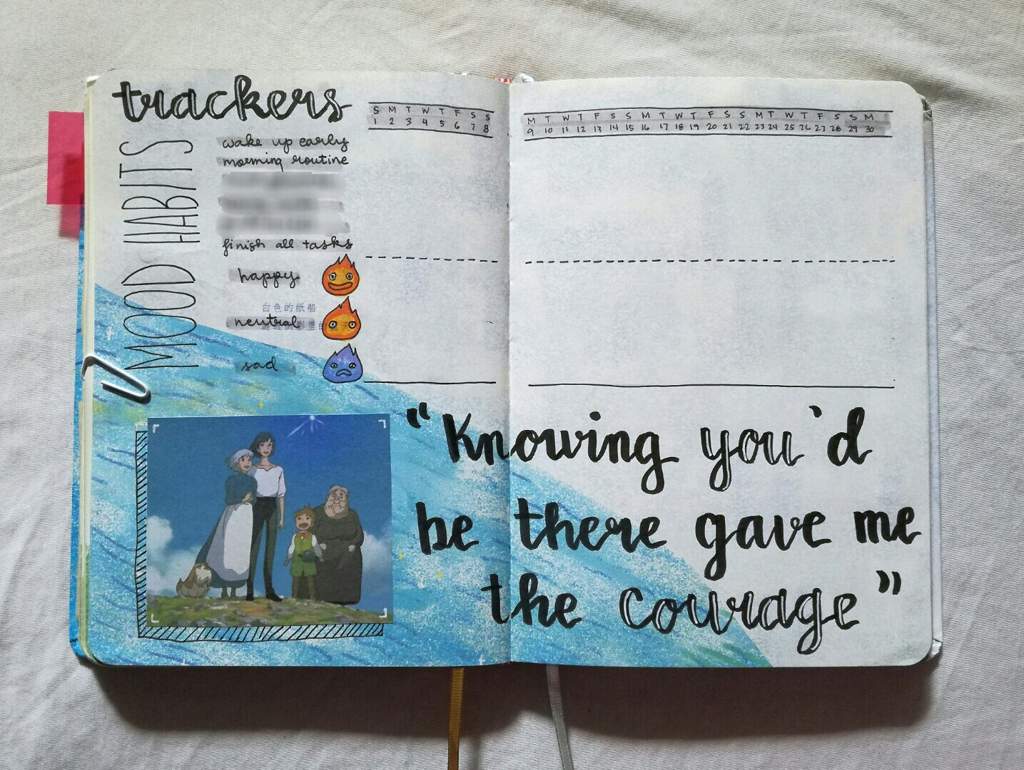 trackers
S M T W T F S S
1 2 3 4 5 6 7 8
M T W T F S S M T W T F S S M T W T F S S M
9 10 11 12 13 14 15 16 17 18 19 20 21 22 23 24 25 26 27 28 29 30
HABITS
wake up early
morning routine
finish all tasks
MOOD
happy
白色的纸船
neutral
sad
"Knowing you'd
be there gave me
the courage"